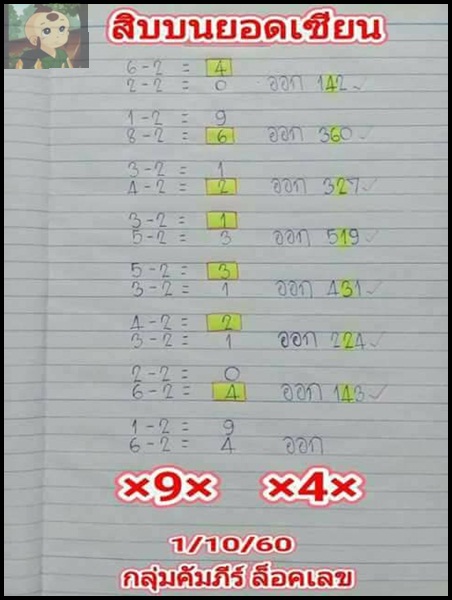 สิบบนยอดเซียน
6-2 = 4
2-2 = 0 ออก 142
1-2 = 9
8-2 = 6 ออก 360
3-2 = 1
4-2 = 2 ออก 327
3-2 = 1
5-2 = 3 ออก 519
5-2 = 3
3-2 = 1 ออก 431
4-2 = 2
3-2 = 1 ออก 224
2-2 = 0
6-2 = 4 ออก 143
1-2 = 9
6-2 = 4 ออก
×9× ×4×
1/10/60
กลุ่มคัมภีร์ ล็อคเลข